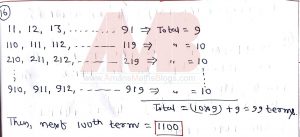 16
11, 12, 13, ......... 91 ⇒ Total = 9
110, 111, 112, ......... 119 ⇒ " = 10
210, 211, 212, ......... 219 ⇒ " = 10
910, 911, 912, ......... 919 ⇒ " = 10
Total = (10×9) + 9 = 99 terms
Thus, next 100th term = 1100